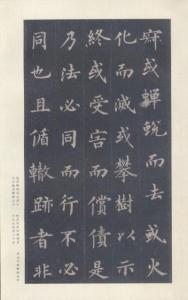 寂或蟬蛻而去或火
化而滅或攀樹以示
終或受害而償債是
乃法必同而行不必
同也且循轍跡者非